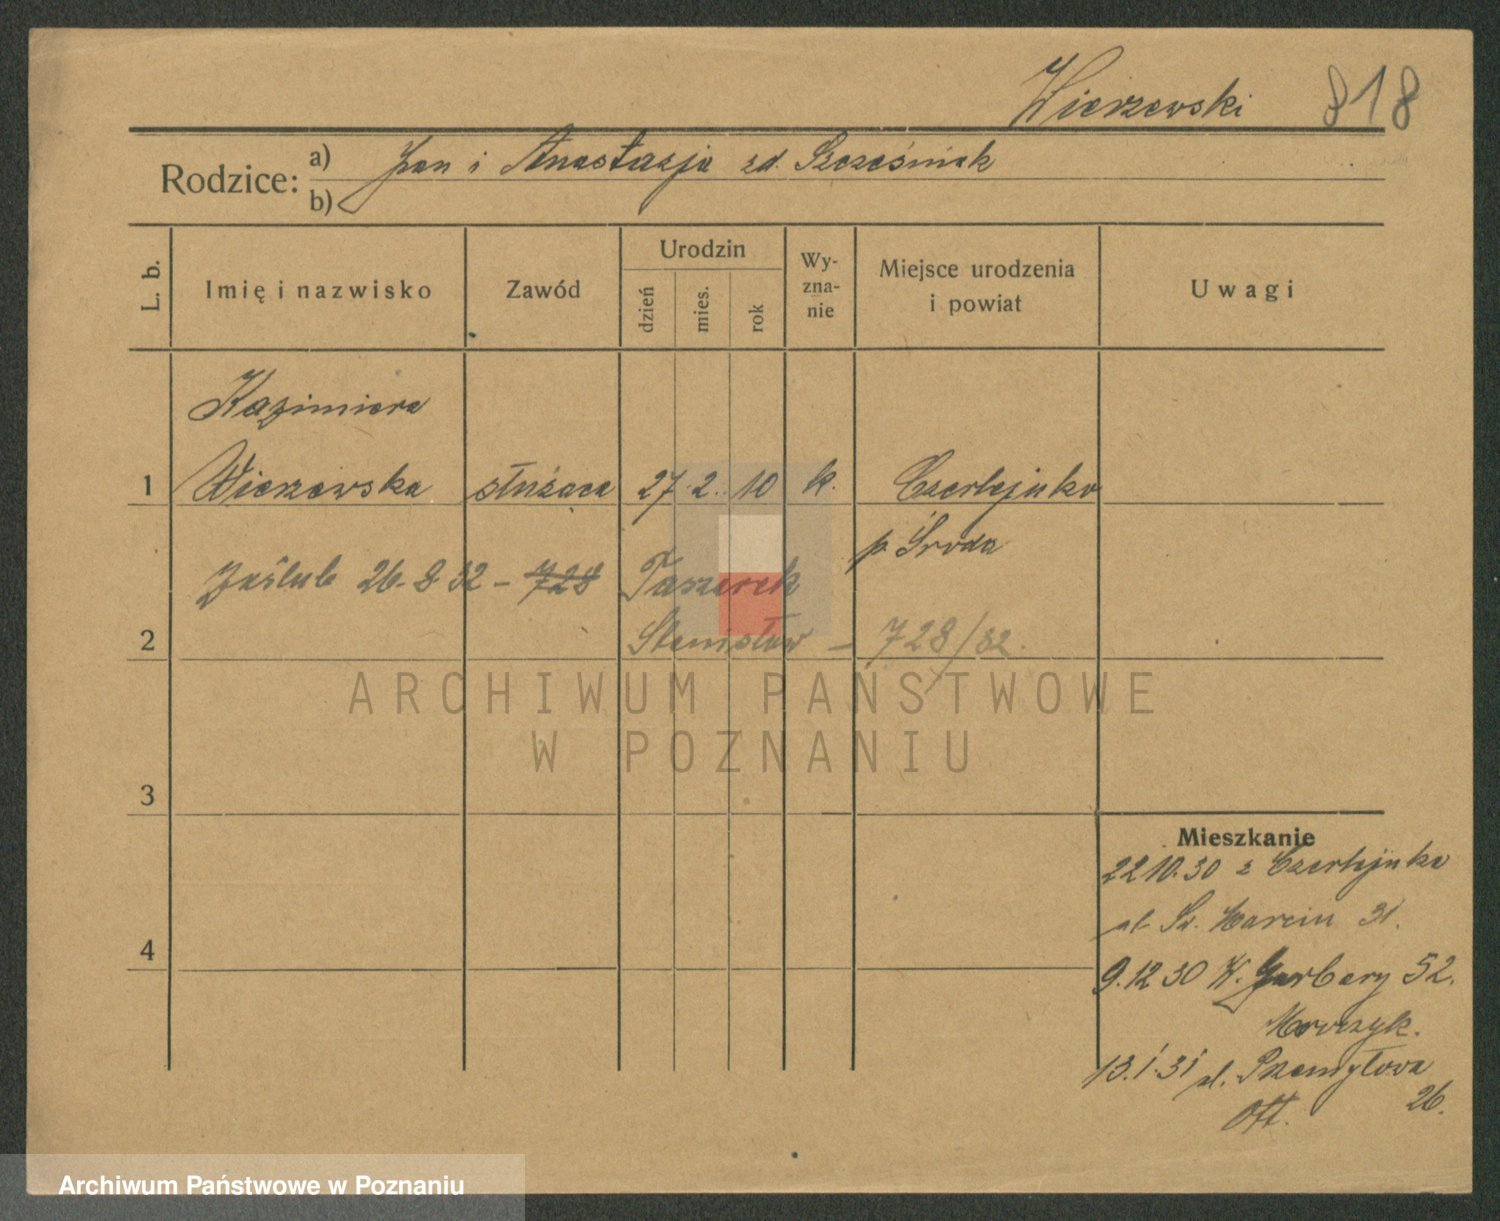 Wierzewski 818
Rodzice: a) Jan i Anastazja zd. Szcześniak
b)
L. b.
Imię i nazwisko
Zawód
Urodzin
dzień
mies.
rok
Wy-
zna-
nie
Miejsce urodzenia
i powiat
Uwagi
Kazimiera
1 Wierzewska służąca 27 2. 10 k. Czerlejnko
p. Środa
Zaślub 26-8 32 - 728 Taszarek
2 Stanisław - 728/32.
ARCHIWUM PAŃSTWOWE
W POZNANIU
3
Mieszkanie
22 10.30 z Czerlejnka
ul. Św. Marcin 31.
4
9.12 30 W. Garbary 52.
13.1.31 ul. Przemysłowa
26.
Ott.
Archiwum Państwowe w Poznaniu